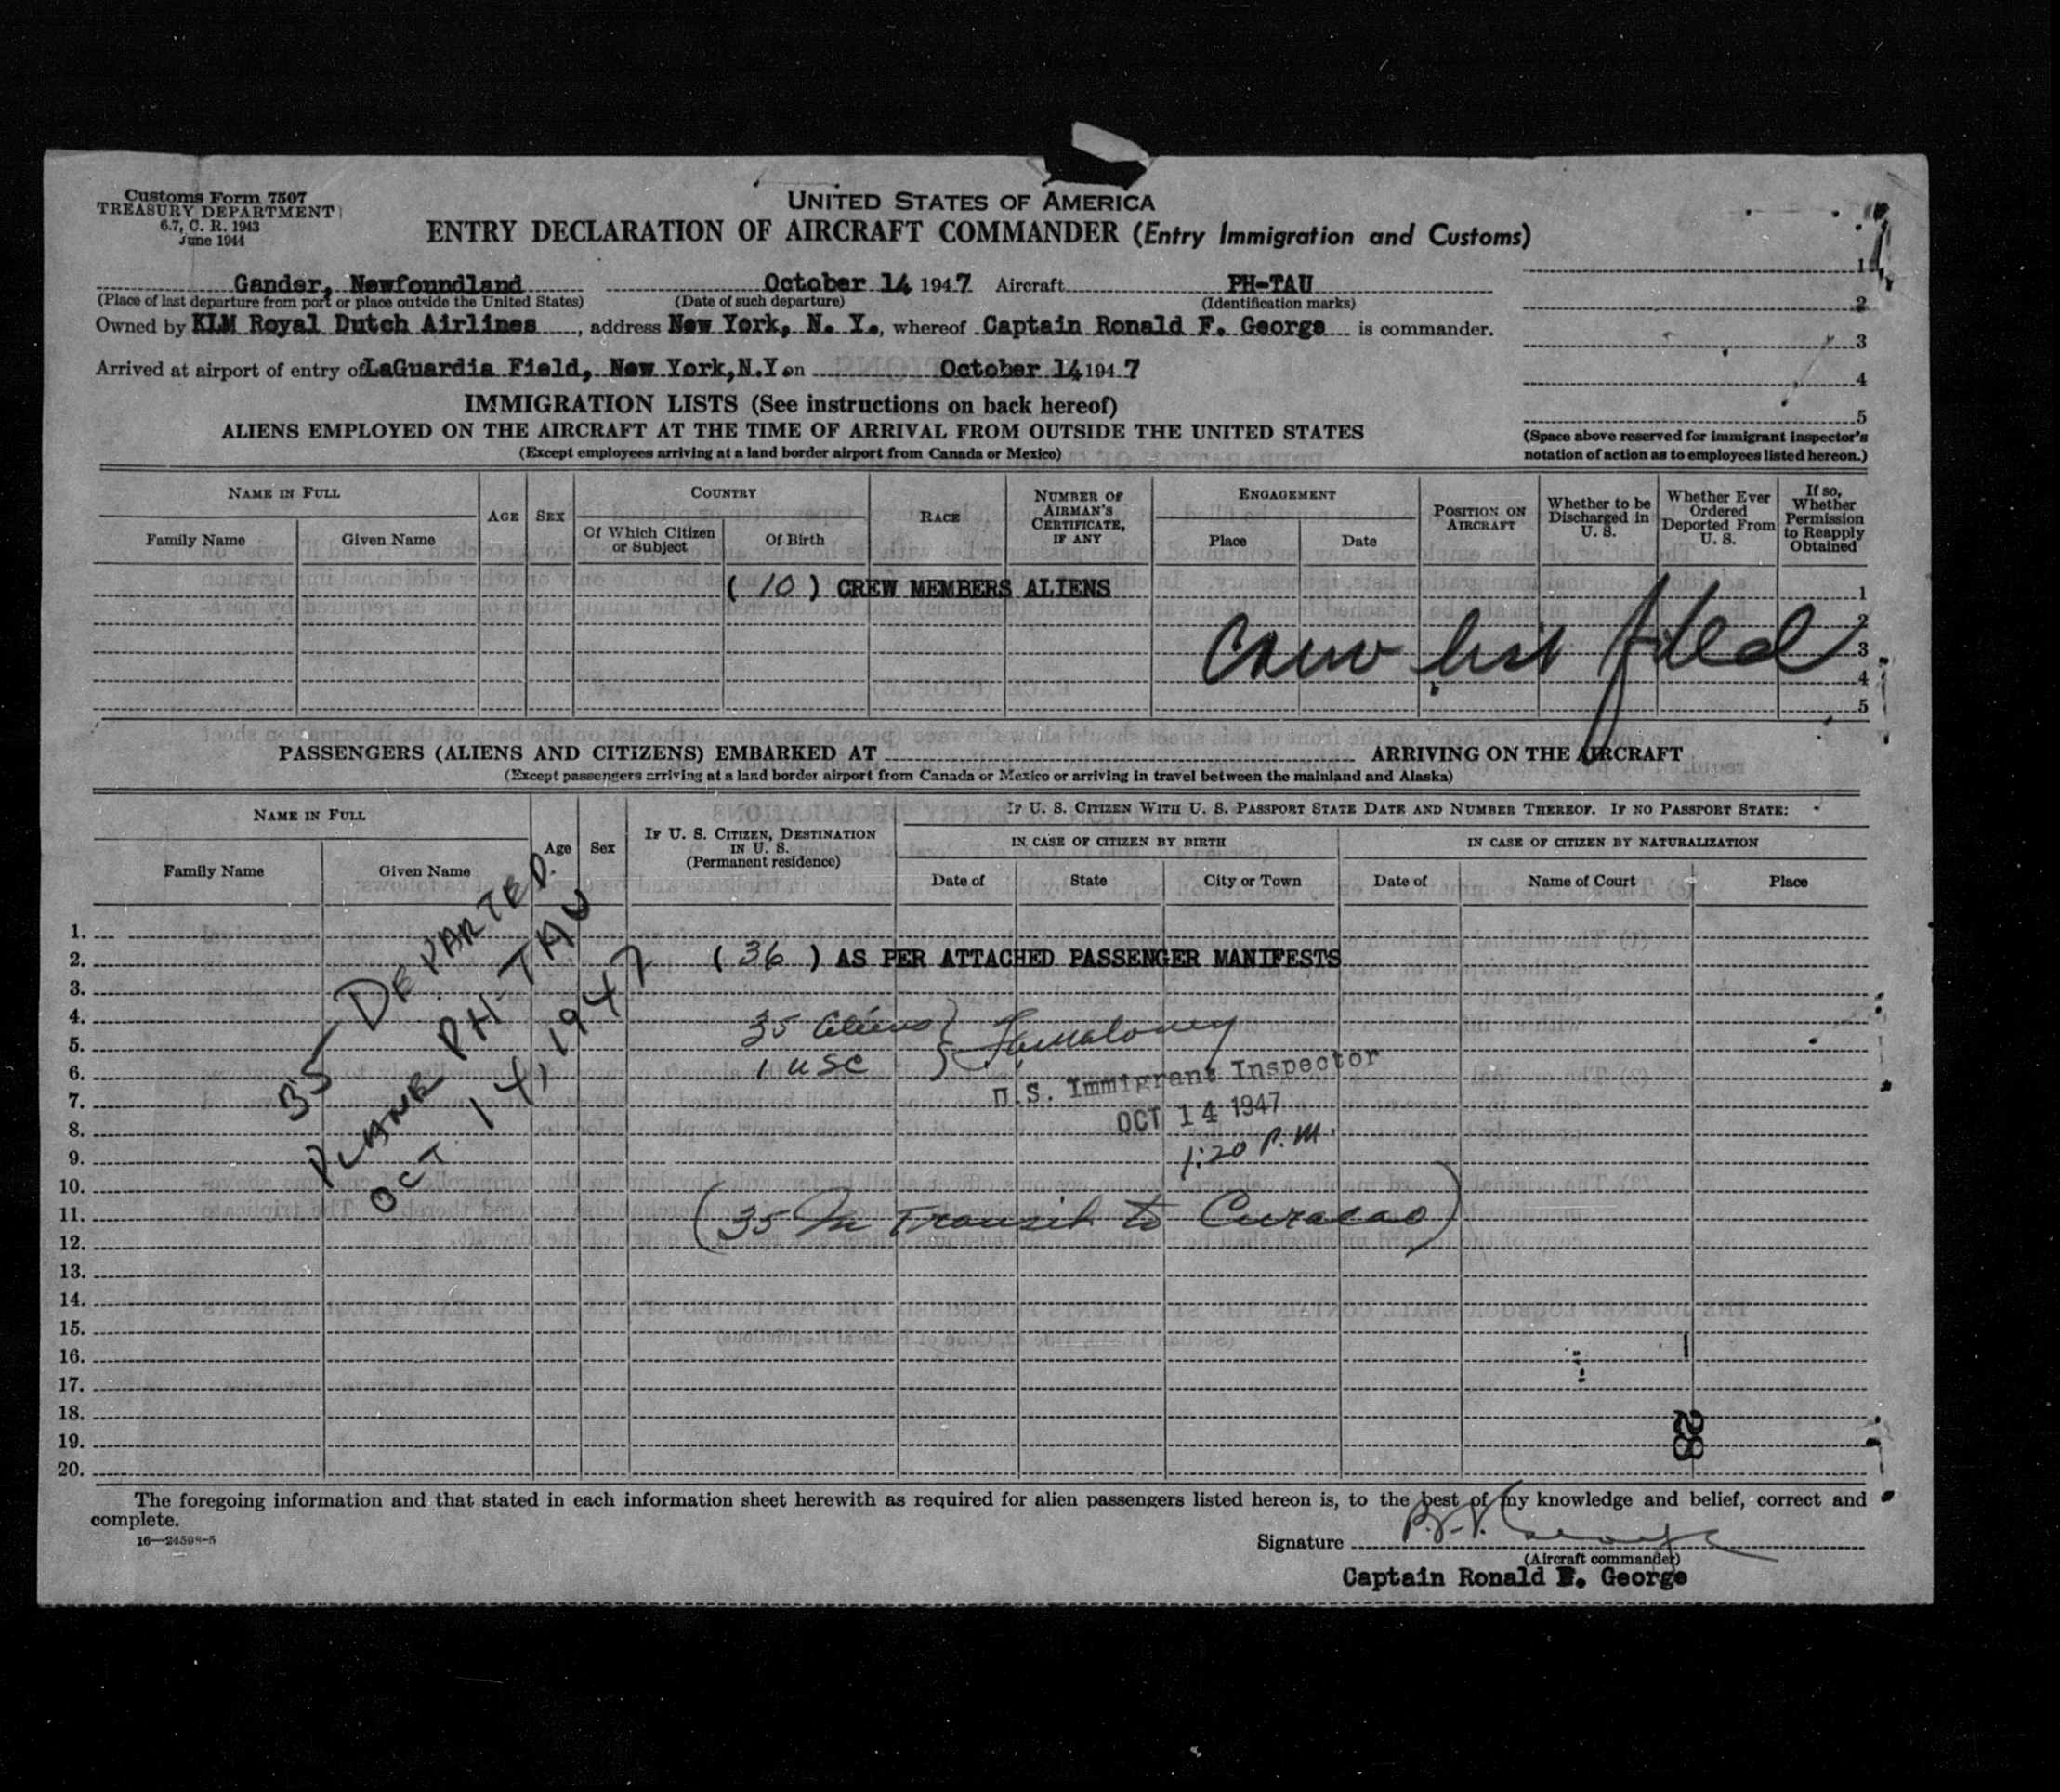 Customs Form 7507
TREASURY DEPARTMENT
6.7, C. R. 1943
June 1944
UNITED STATES OF AMERICA
ENTRY DECLARATION OF AIRCRAFT COMMANDER (Entry Immigration and Customs)
Gander, Newfoundland October 14 1947 Aircraft PH-TAU
(Place of last departure from port or place outside the United States) (Date of such departure) (Identification marks)
Owned by KLM Royal Dutch Airlines, address New York, N. Y., whereof Captain Ronald F. George is commander.
Arrived at airport of entry of LaGuardia Field, New York, N.Y on October 14 1947
1
2
3
4
5
(Space above reserved for immigrant inspector's
notation of action as to employees listed hereon.)
IMMIGRATION LISTS (See instructions on back hereof)
ALIENS EMPLOYED ON THE AIRCRAFT AT THE TIME OF ARRIVAL FROM OUTSIDE THE UNITED STATES
(Except employees arriving at a land border airport from Canada or Mexico)
NAME IN FULL
Family Name
Given Name
AGE
SEX
COUNTRY
Of Which Citizen
or Subject
Of Birth
RACE
NUMBER OF
AIRMAN'S
CERTIFICATE,
IF ANY
ENGAGEMENT
Place
Date
POSITION ON
AIRCRAFT
Whether to be
Discharged in
U. S.
Whether Ever
Ordered
Deported From
U. S.
If so,
Whether
Permission
to Reapply
Obtained
( 10 ) CREW MEMBERS ALIENS
Crew list filed
1
2
3
4
5
PASSENGERS (ALIENS AND CITIZENS) EMBARKED AT ARRIVING ON THE AIRCRAFT
(Except passengers arriving at a land border airport from Canada or Mexico or arriving in travel between the mainland and Alaska)
NAME IN FULL
Family Name
Given Name
Age
Sex
IF U. S. CITIZEN, DESTINATION
IN U. S.
(Permanent residence)
IF U. S. CITIZEN WITH U. S. PASSPORT STATE DATE AND NUMBER THEREOF. IF NO PASSPORT STATE:
IN CASE OF CITIZEN BY BIRTH
IN CASE OF CITIZEN BY NATURALIZATION
Date of
State
City or Town
Date of
Name of Court
Place
35 DEPARTED
PLANE PH-TAU
OCT. 14, 1947
1.
2. ( 36 ) AS PER ATTACHED PASSENGER MANIFESTS
3.
4. 35 Aliens
5.
6. 1 USC
U.S. Immigrant Inspector
7.
8. OCT 14 1947
9. 1:20 P.M.
10.
11. (35 In Transit to Curacao)
12.
13.
14.
15.
16.
17.
18.
19.
20.
28
The foregoing information and that stated in each information sheet herewith as required for alien passengers listed hereon is, to the best of my knowledge and belief, correct and
complete.
16—24598-5
Signature
(Aircraft commander)
Captain Ronald F. George